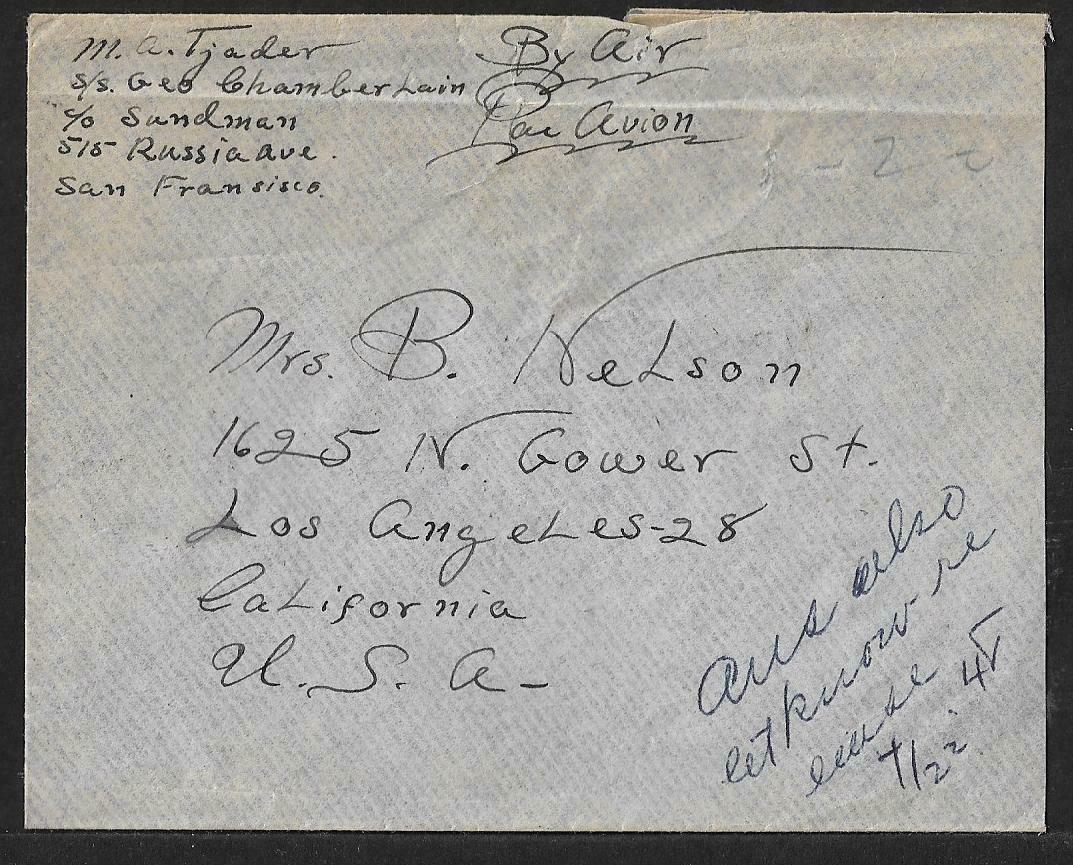 M. A. Tjader
S/S. Geo Chamberlain
c/o Sandman
515 Russia ave.
San Fransisco.
By Air
Par Avion
Mrs. B. Nelson
1625 N. Gower St.
Los Angeles-28
California
U. S. A-
ans also
let know re
4/22 '45